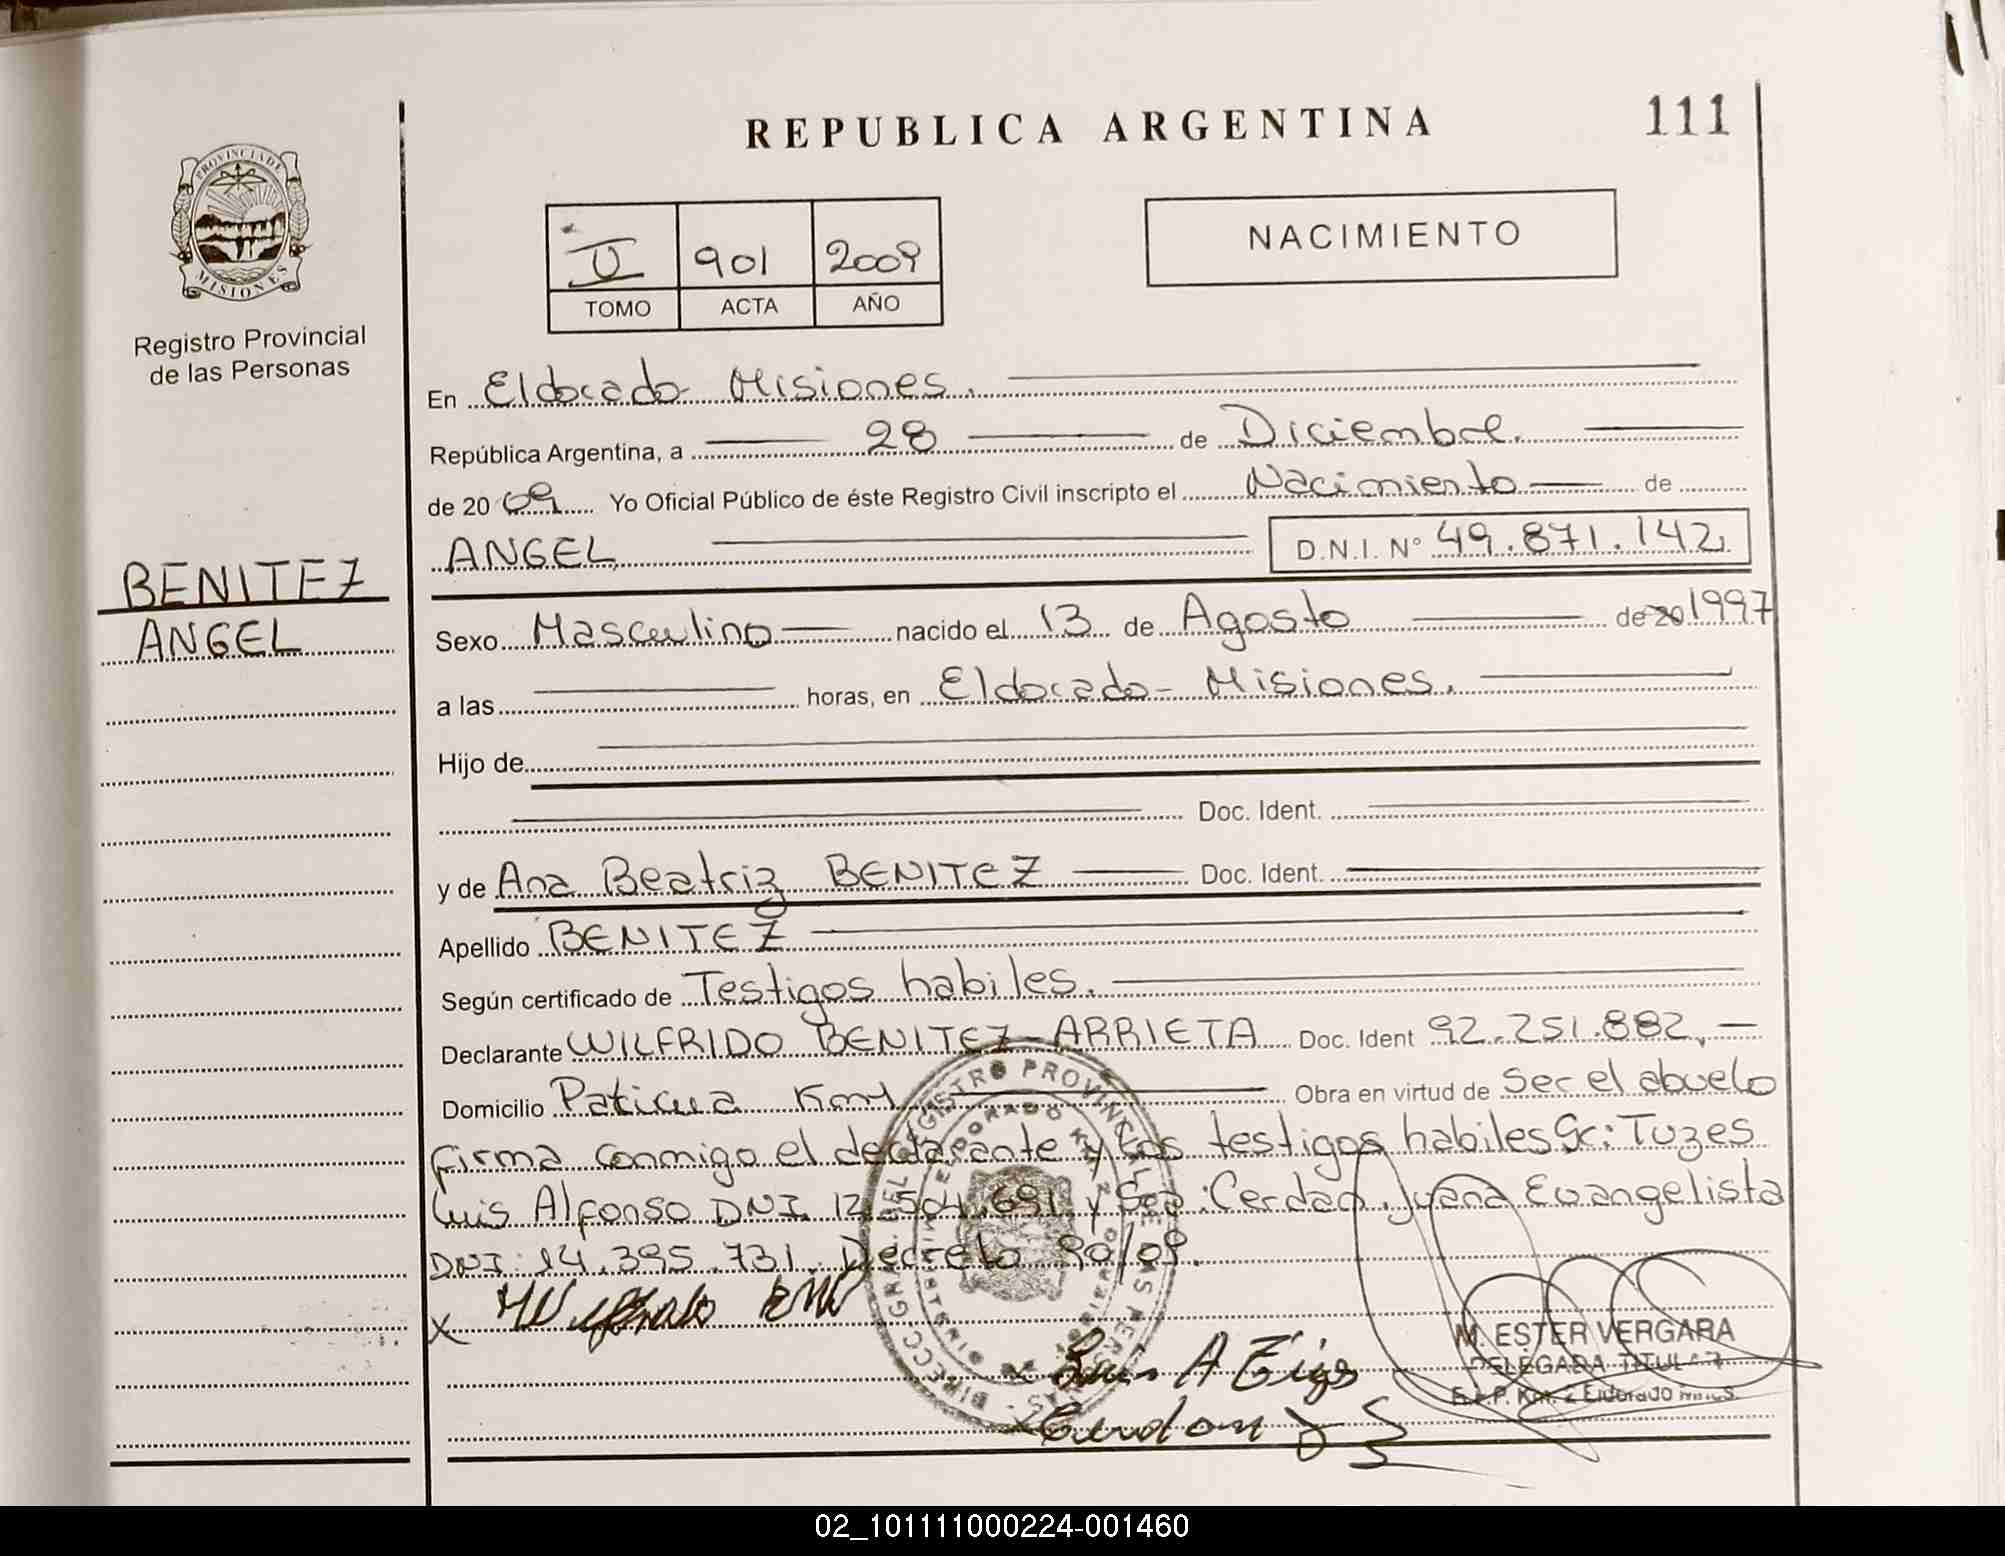 REPUBLICA ARGENTINA
111
PROVINCIA DE
MISIONES
Registro Provincial
de las Personas
II 901 2009
TOMO ACTA AÑO
NACIMIENTO
En Eldorado Misiones.
República Argentina, a 28 de Diciembre.
de 2009 Yo Oficial Público de éste Registro Civil inscripto el Nacimiento de
ANGEL D.N.I. N° 49.871.142
BENITEZ
ANGEL
Sexo Masculino nacido el 13 de Agosto de 20 1997
a las horas, en Eldorado - Misiones.
Hijo de
Doc. Ident.
y de Ana Beatriz BENITEZ Doc. Ident.
Apellido BENITEZ
Según certificado de Testigos habiles.
Declarante WILFRIDO BENITEZ-ARRIETA Doc. Ident 92.251.882,
Domicilio Paticua Km1 Obra en virtud de ser el abuelo
firma conmigo el declarante y los testigos habiles Sr: Tuzes
Luis Alfonso DNI. 12.504.691 y Sra: Cerdan Juana Evangelista
DNI: 14.395.731. Decreto 90/09.
X
M. ESTER VERGARA
DELEGADA TITULAR
R.P.P. Km. 2 Eldorado Mnes.
02_101111000224-001460